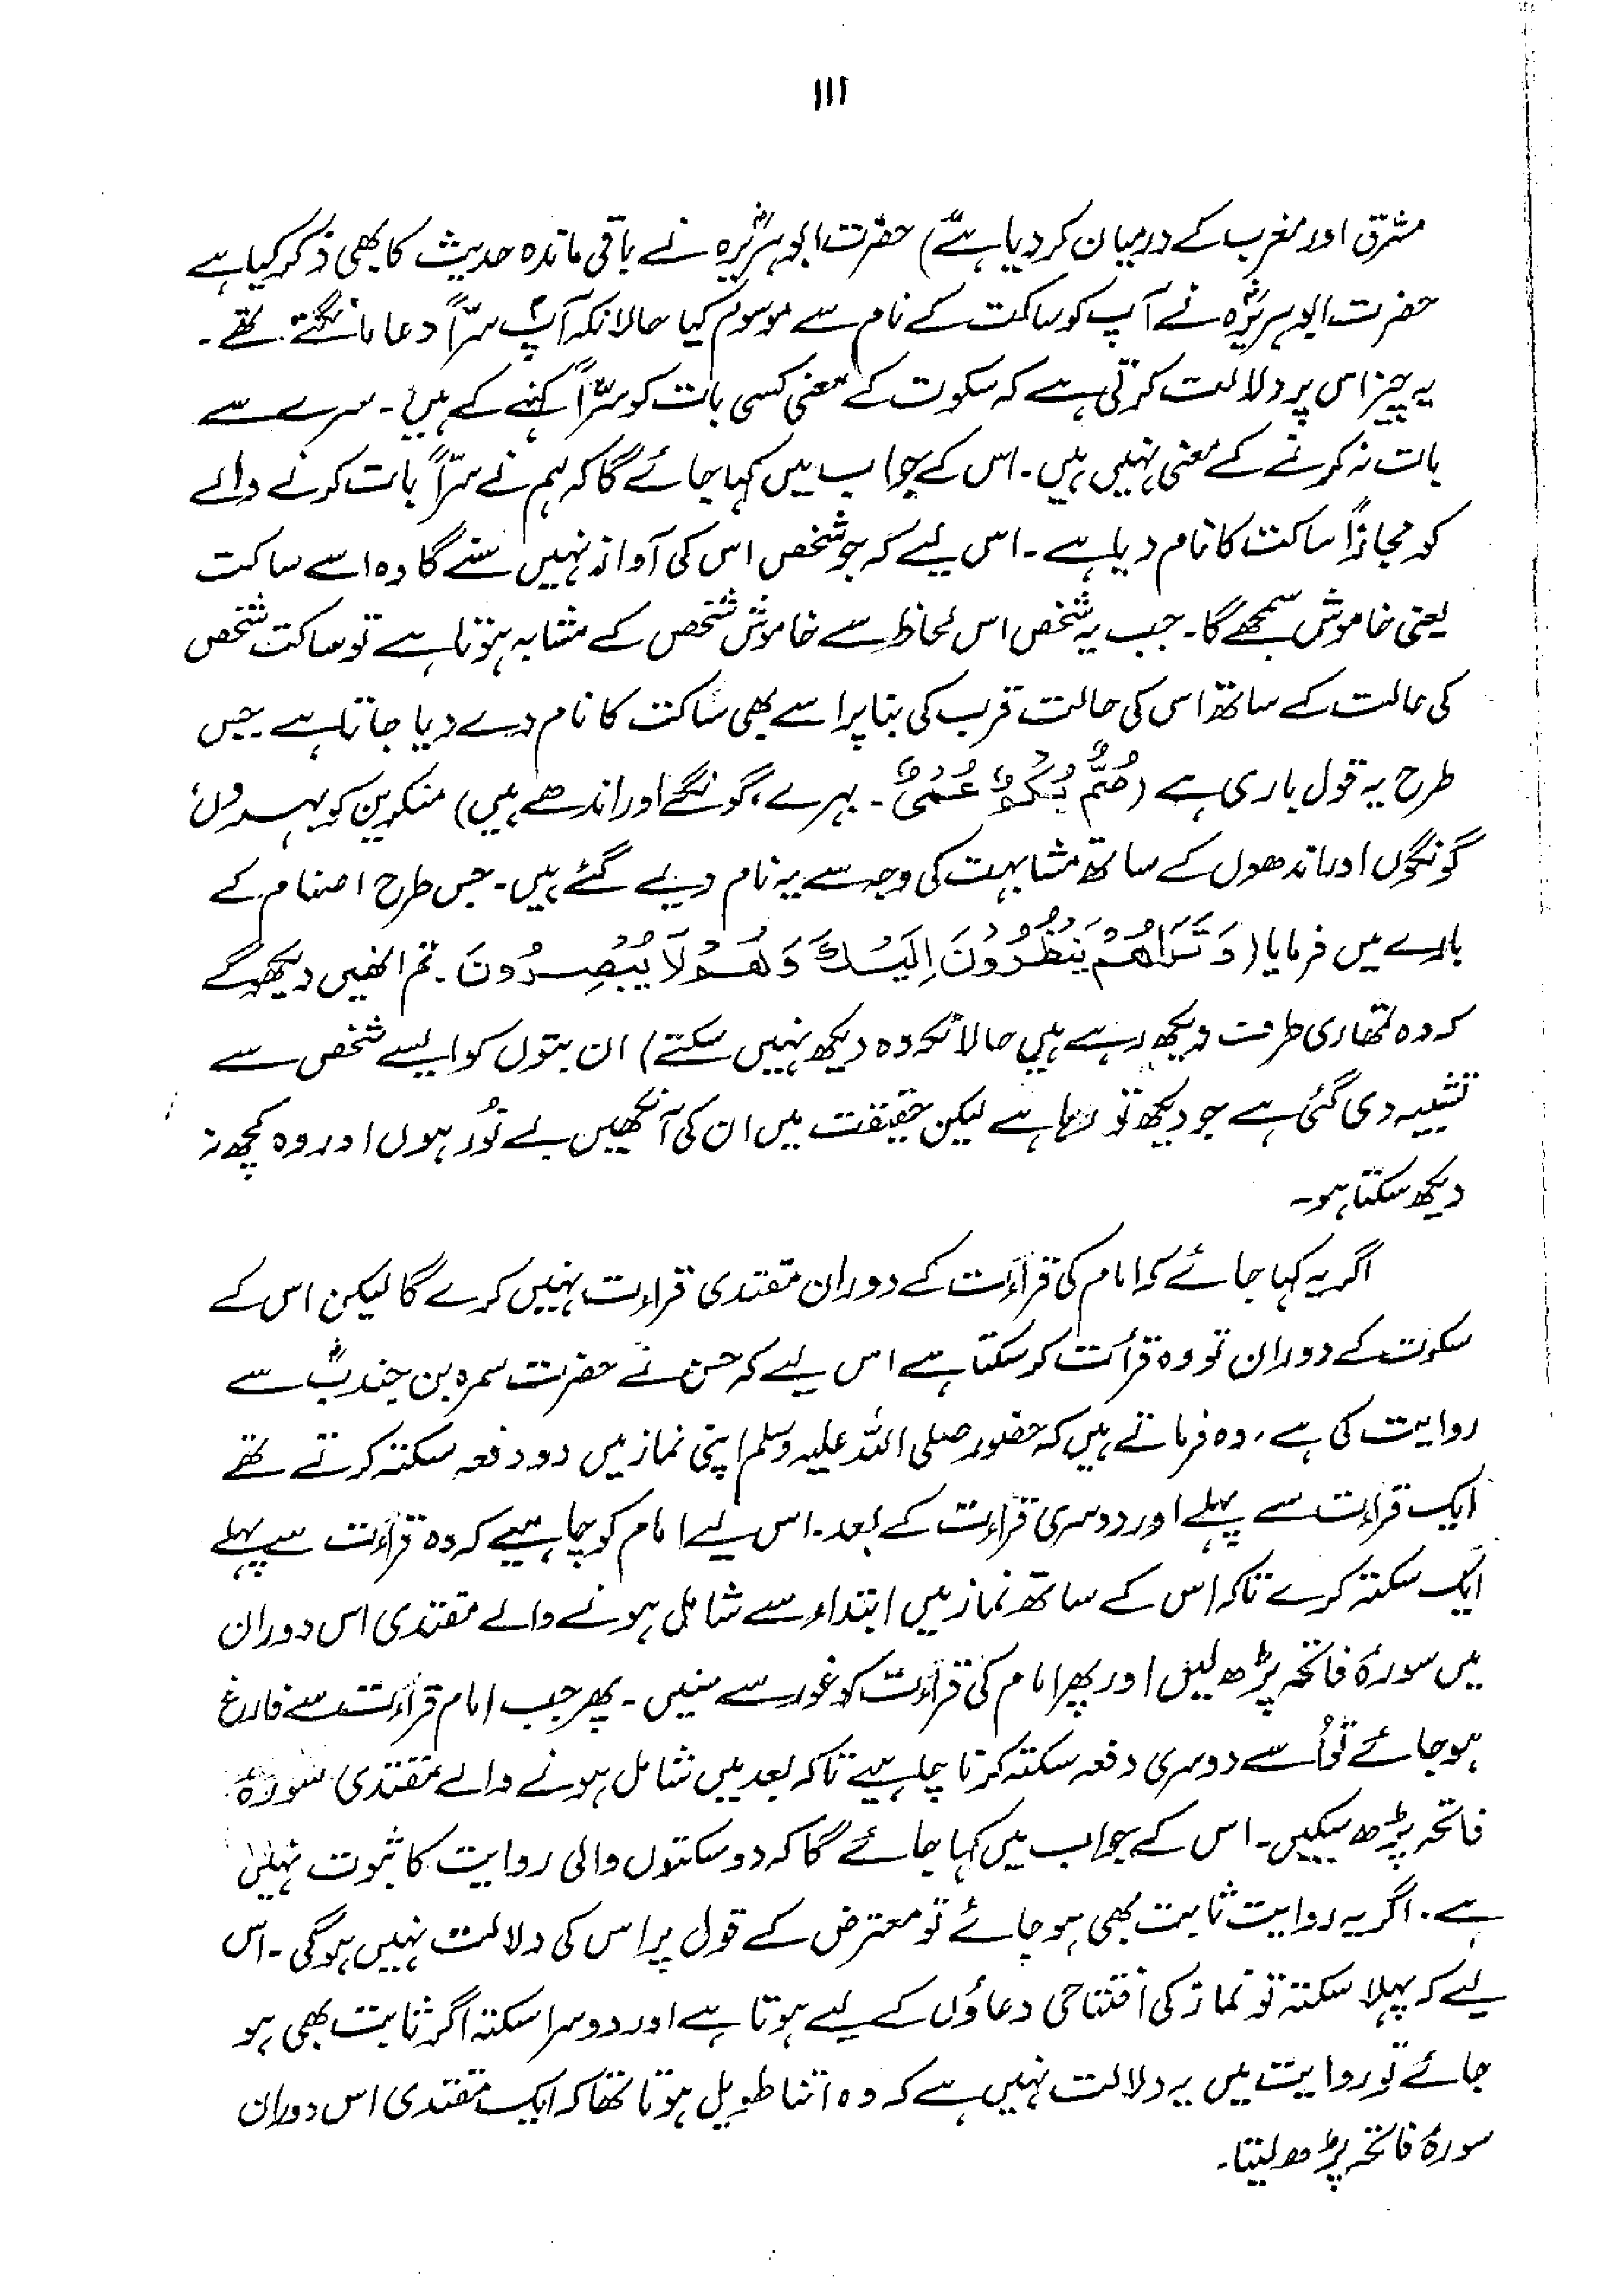 ۱۱۱
مشرق اور مغرب کے درمیان کر دیا ہے) حضرت ابوہریرہؓ نے باقی ماندہ حدیث کا بھی ذکر کیا ہے
حضرت ابوہریرہؓ نے آپ کو ساکت کے نام سے موسوم کیا حالانکہ آپؐ سراً دعا مانگتے تھے۔
یہ چیز اس پر دلالت کرتی ہے کہ سکوت کے معنی کسی بات کو سراً کہنے کے ہیں۔ سرے سے
بات نہ کرنے کے معنی نہیں ہیں۔ اس کے جواب میں کہا جائے گا کہ ہم نے سراً بات کرنے والے
کو مجازاً ساکت کا نام دیا ہے۔ اس لیے کہ جو شخص اس کی آواز نہیں سنے گا وہ اسے ساکت
یعنی خاموش سمجھے گا۔ جب یہ شخص اس لحاظ سے خاموش شخص کے مشابہ ہوتا ہے تو ساکت شخص
کی حالت کے ساتھ اس کی حالت قرب کی بنا پر اسے بھی ساکت کا نام دے دیا جاتا ہے۔ جس
طرح یہ قول باری ہے (صُمٌّ بُكْمٌ عُمْیٌ۔ بہرے، گونگے اور اندھے ہیں) منکرین کو بہروں
گونگوں اور اندھوں کے ساتھ مشابہت کی وجہ سے یہ نام دیے گئے ہیں۔ جس طرح اصنام کے
بارے میں فرمایا (وَتَرَاهُمْ يَنْظُرُوْنَ اِلَيْكَ وَهُمْ لَا يُبْصِرُوْنَ۔ تم انھیں دیکھو گے
کہ وہ تمھاری طرف دیکھ رہے ہیں حالانکہ وہ دیکھ نہیں سکتے) ان بتوں کو ایسے شخص سے
تشبیہ دی گئی ہے جو دیکھ تو رہا ہے لیکن حقیقت میں ان کی آنکھیں بے نُور ہوں اور وہ کچھ نہ
دیکھ سکتا ہو۔
اگر یہ کہا جائے کہ امام کی قرأت کے دوران مقتدی قراءت نہیں کرے گا لیکن اس کے
سکوت کے دوران تو وہ قرأت کر سکتا ہے اس لیے کہ حسن نے حضرت سمرہ بن جندبؓ سے
روایت کی ہے، وہ فرماتے ہیں کہ حضور صلی اللہ علیہ وسلم اپنی نماز میں دو دفعہ سکتہ کرتے تھے
ایک قراءت سے پہلے اور دوسری قراءت کے بعد۔ اس لیے امام کو چاہیے کہ وہ قرأت سے پہلے
ایک سکتہ کرے تاکہ اس کے ساتھ نماز میں ابتداء سے شامل ہونے والے مقتدی اس دوران
میں سورۂ فاتحہ پڑھ لیں اور پھر امام کی قرأت کو غور سے سنیں۔ پھر جب امام قراءت سے فارغ
ہو جائے تو اُسے دوسری دفعہ سکتہ کرنا چاہیے تاکہ بعد میں شامل ہونے والے مقتدی سورۂ
فاتحہ پڑھ سکیں۔ اس کے جواب میں کہا جائے گا کہ دو سکتوں والی روایت کا ثبوت نہیں
ہے۔ اگر یہ روایت ثابت بھی ہو جائے تو معترض کے قول پر اس کی دلالت نہیں ہوگی۔ اس
لیے کہ پہلا سکتہ تو نماز کی افتتاحی دعاؤں کے لیے ہوتا ہے اور دوسرا سکتہ اگر ثابت بھی ہو
جائے تو روایت میں یہ دلالت نہیں ہے کہ وہ اتنا طویل ہوتا تھا کہ ایک مقتدی اس دوران
سورۂ فاتحہ پڑھ لیتا۔